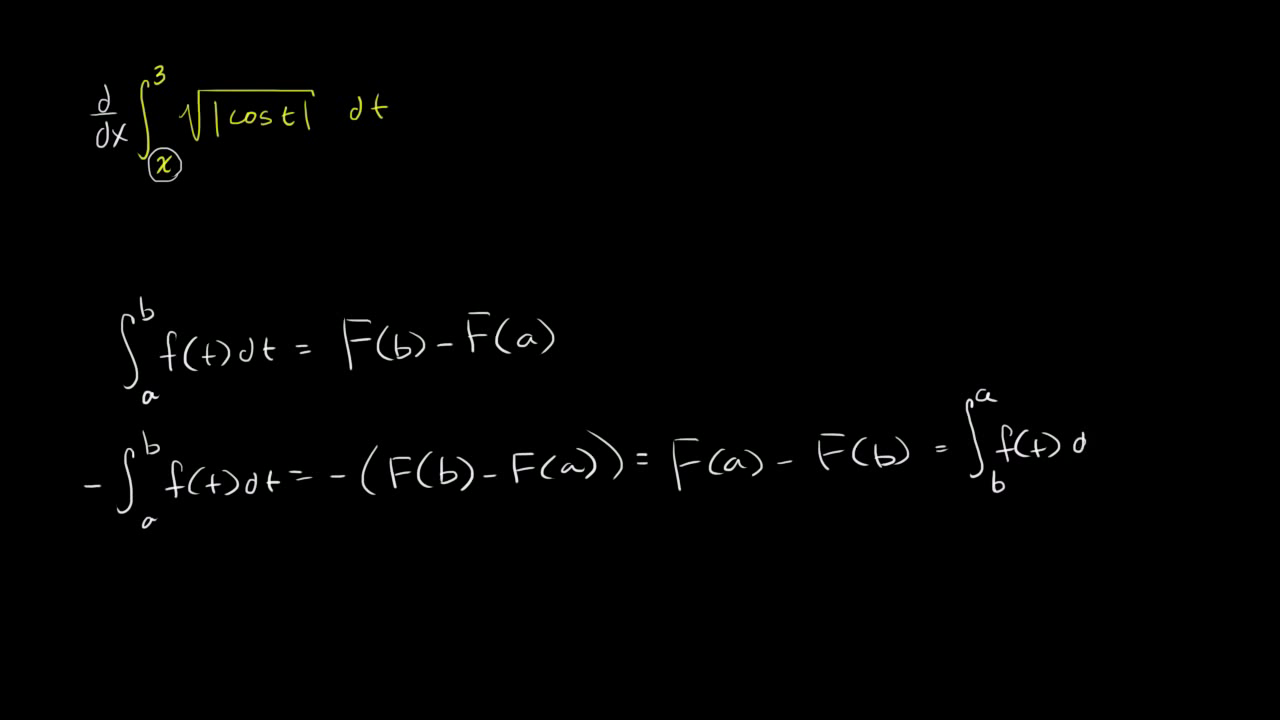 d/dx ∫_x^3 √|cos t| dt
∫_a^b f(t)dt = F(b) - F(a)
-∫_a^b f(t)dt = -(F(b) - F(a)) = F(a) - F(b) = ∫_b^a f(t) d